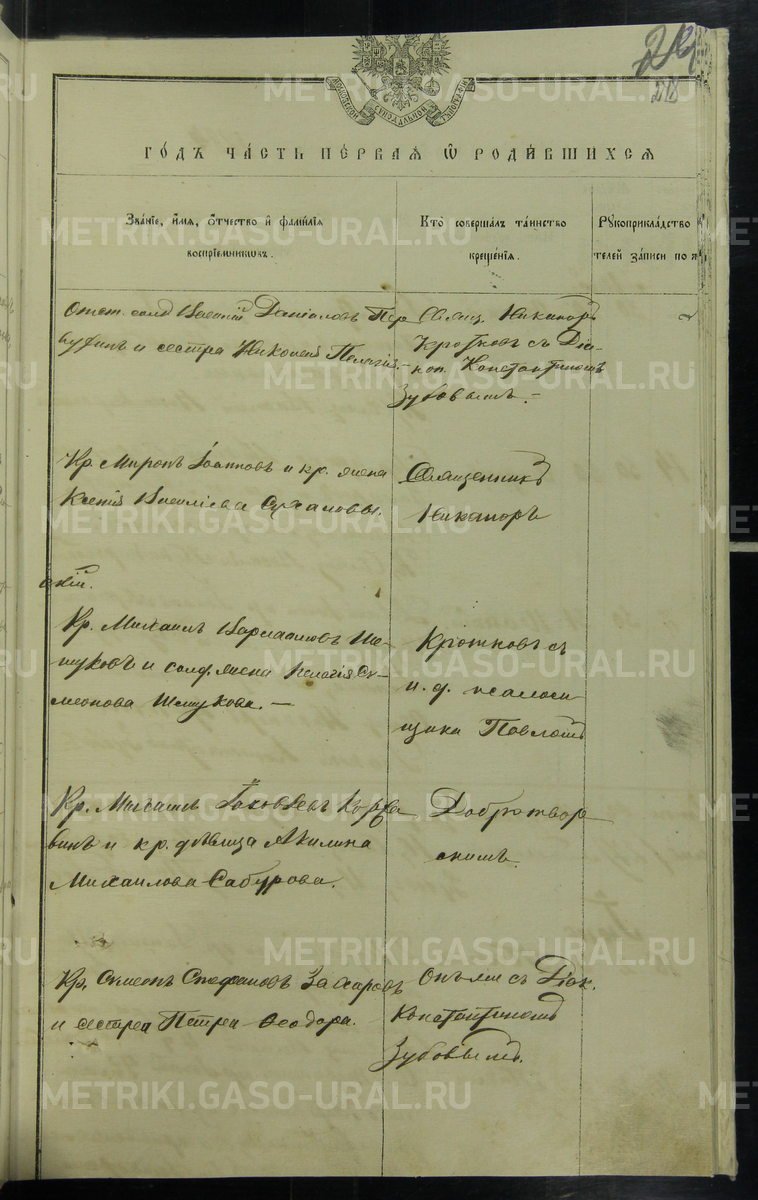 218
МОСКОВСКОЙ СѴНОДАЛЬНОЙ ТѴПОГРАФІИ
ГО́ДЪ ЧА́СТЬ ПЕ́РВАЯ Ѡ҆ РОДИ́ВШИХСЯ
Зва́нїе, и҆́мя, о҆́тчество и҆ фами́лїя
воспрїе́мниковъ.
Кто̀ соверша́лъ та́инство
креще́нїя.
Рꙋкоприкла́дство
телей за́писи по я
Отст. солд. Василій Даніиловъ Пер
и сестра Николая Пелагія. –
Свящ. Никаноръ
Кротковъ съ Діа-
кон. Константиномъ
Зубовымъ. –
Кр. Миронъ Іоанновъ и кр. жена
Ксенія Василіева Сухановы.
Священникъ
Никаноръ
скій.
Кр. Михаилъ Варлаамовъ Ше-
муковъ и солд. жена Пелагія Си-
меонова Шемукова. –
Кротковъ съ
и. д. псалом
щика Павломъ
Кр. Михаилъ Іаковлевъ
винъ и кр. дѣвица Акилина
Михаилова Сабурова.
Добротвор
скимъ.
Кр. Симеонъ Стефановъ Захаровъ
и сестра Петра Ѳеодора.
Онъ же съ Діак.
Константиномъ
Зубовымъ.
METRIKI.GASO-URAL.RU